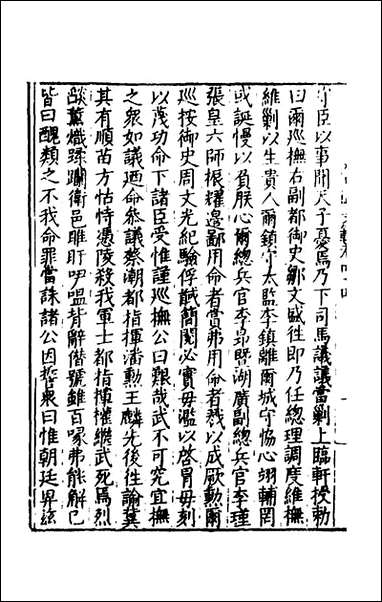 守臣以事聞天子憂焉乃下司馬議議當剿上臨軒授勅
曰爾巡撫右副都御史鄒文盛往即乃任總理調度維撫
維剿以生貴人爾鎮守太監李鎮雖爾城守恊心翊輔罔
或誕慢以負朕心爾總兵官李昻曁湖廣副總兵官李瑾
張皇六師振耀邉鄙用命者賞弗用命者裁以成厥勲爾
巡按御史周文光紀驗俘馘簡閱必實毋濫以啓冒毋刻
以蔑功命下諸臣受惟謹巡撫公曰艱哉武不可究宜撫
之衆如議廼命叅議蔡潮都指揮潘勲王麟先後往諭冀
其有順苗方怙恃憑陵殺我軍士都指揮權繼武死焉烈
燄薰熾蹂躙衛邑睢盱呼嘔背辭偕號雖百喙弗能解巳
皆曰醜類之不我命罪當誅諸公因誓衆曰惟朝廷畀兹